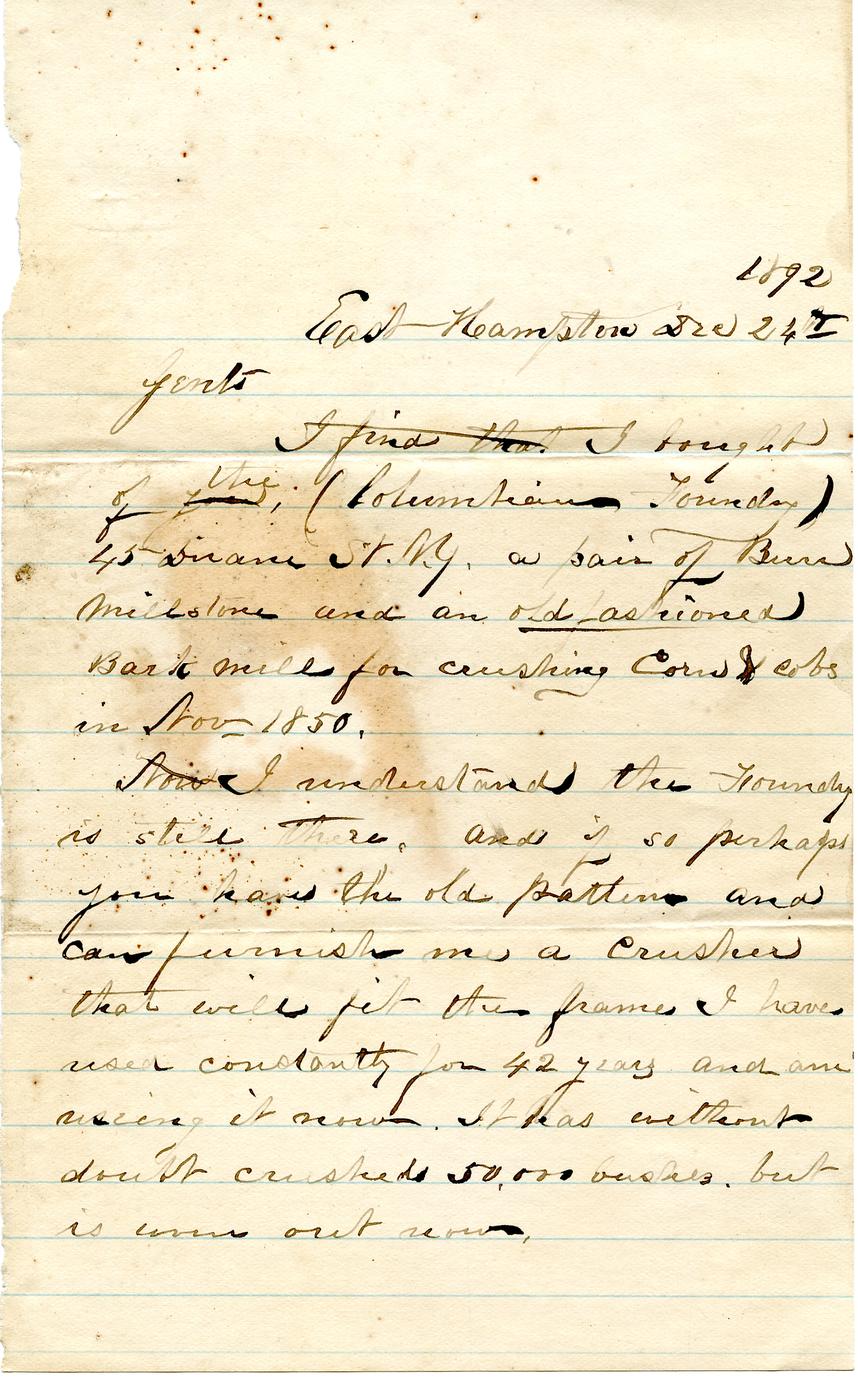 1892
East Hampton Dec 24th
Gents
I find that I bought
the
of you, (Columbian Foundry)
45 Duane St. N.Y. a pair of Burr
Millstone and an old fashioned
Bark mill for crushing Corn & cobs
in Nov 1850.
Now I understand the Foundry
is still there. and if so perhaps
you have the old pattern and
can furnish me a crusher
that will fit the frame I have
used constantly for 42 years and am
useing it now. It has without
doubt crushed 50,000 bushes. but
is worn out now.